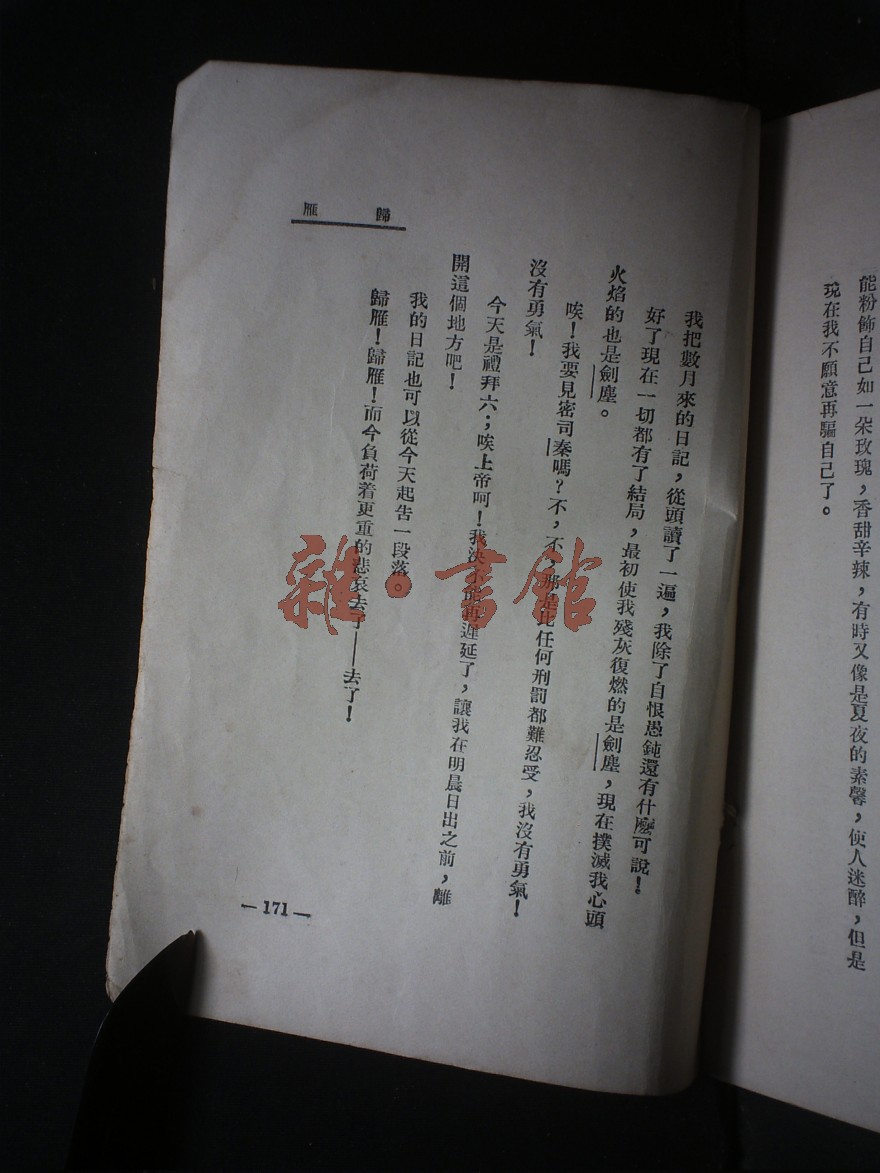 能粉飾自己如一朵玫瑰，香甜辛辣，有時又像是夏夜的素馨，使人迷醉，但是
現在我不願意再騙自己了。
歸雁
我把數月來的日記，從頭讀了一遍，我除了自恨愚鈍還有什麼可說！
好了現在一切都有了結局，最初使我殘灰復燃的是劍塵，現在撲滅我心頭
火焰的也是劍塵。
唉！我要見密司秦嗎？不，不，那是比任何刑罰都難忍受，我沒有勇氣！
沒有勇氣！
今天是禮拜六；唉上帝呵！我決不能再遲延了，讓我在明晨日出之前，離
開這個地方吧！
我的日記也可以從今天起告一段落。
歸雁！歸雁！而今負荷着更重的悲哀去了——去了！
— 171 —
雜。書館